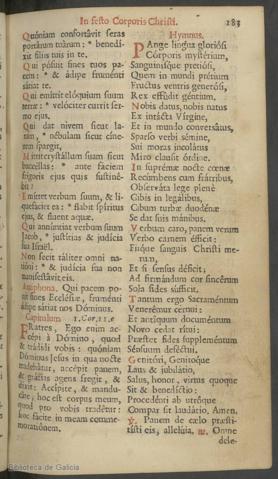 In festo Corporis Christi. 183
Quóniam confortávit seras
portárum tuárum: * benedí-
xit filiis tuis in te.
Qui pósuit fines tuos pa-
cem: * & ádipe fruménti
sátiat te.
Qui emíttit elóquium suum
terræ: * velóciter currit ser-
mo ejus.
Qui dat nivem sicut la-
nam, * nébulam sicut cíne-
rem spargit,
Mittit crystállum suam sicut
buccéllas: * ante fáciem
frígoris ejus quis sustiné-
bit?
Emíttet verbum suum, & li-
quefáciet ea: * flabit spíritus
ejus, & fluent aquæ.
Qui annúntiat verbum suum
Jacob, * justítias & judícia
sua Israël.
Non fecit táliter omni na-
tióni: * & judícia sua non
manifestávit eis.
Antiphona. Qui pacem po-
nit fines Ecclésiæ, fruménti
ádipe sátiat nos Dóminus.
Capitulum. 1. Cor. 11. e
FRatres, Ego enim ac-
cépi à Dómino, quod
& trádidi vobis: quóniam
Dóminus Jesus in qua nocte
tradebátur, accépit panem,
& grátias agens fregit, &
dixit: Accípite, & mandu-
cáte, hoc est corpus meum,
quod pro vobis tradétur:
hoc fácite in meam comme-
moratiónem.
Hymnus.
PAnge lingua gloriósi
Córporis mystérium,
Sanguinísque pretiósi,
Quem in mundi prétium
Fructus ventris generósi,
Rex effúdit géntium.
Nobis datus, nobis natus
Ex intácta Vírgine,
Et in mundo conversátus,
Sparso verbi sémine,
Sui moras incolátus
Miro clausit órdine.
In suprémæ nocte cœnæ
Recúmbens cum frátribus,
Observáta lege plenè
Cibis in legálibus,
Cibum turbæ duodénæ
Se dat suis mánibus.
Verbum caro, panem verum
Verbo carnem éfficit:
Fitque sanguis Christi me-
rum,
Et si sensus déficit;
Ad firmándum cor sincérum
Sola fides súfficit.
Tantum ergo Sacraméntum
Venerémur cérnui:
Et antíquum documéntum
Novo cedat rítui:
Præstet fides suppleméntum
Sénsuum deféctui.
Genitóri, Genitóque
Laus & jubilátio,
Salus, honor, virtus quoque
Sit & benedíctio:
Procedénti ab utróque
Compar sit laudátio. Amen.
℣. Panem de cælo præsti-
tísti eis, allelúia. ℟. Omne
dele-
Biblioteca de Galicia